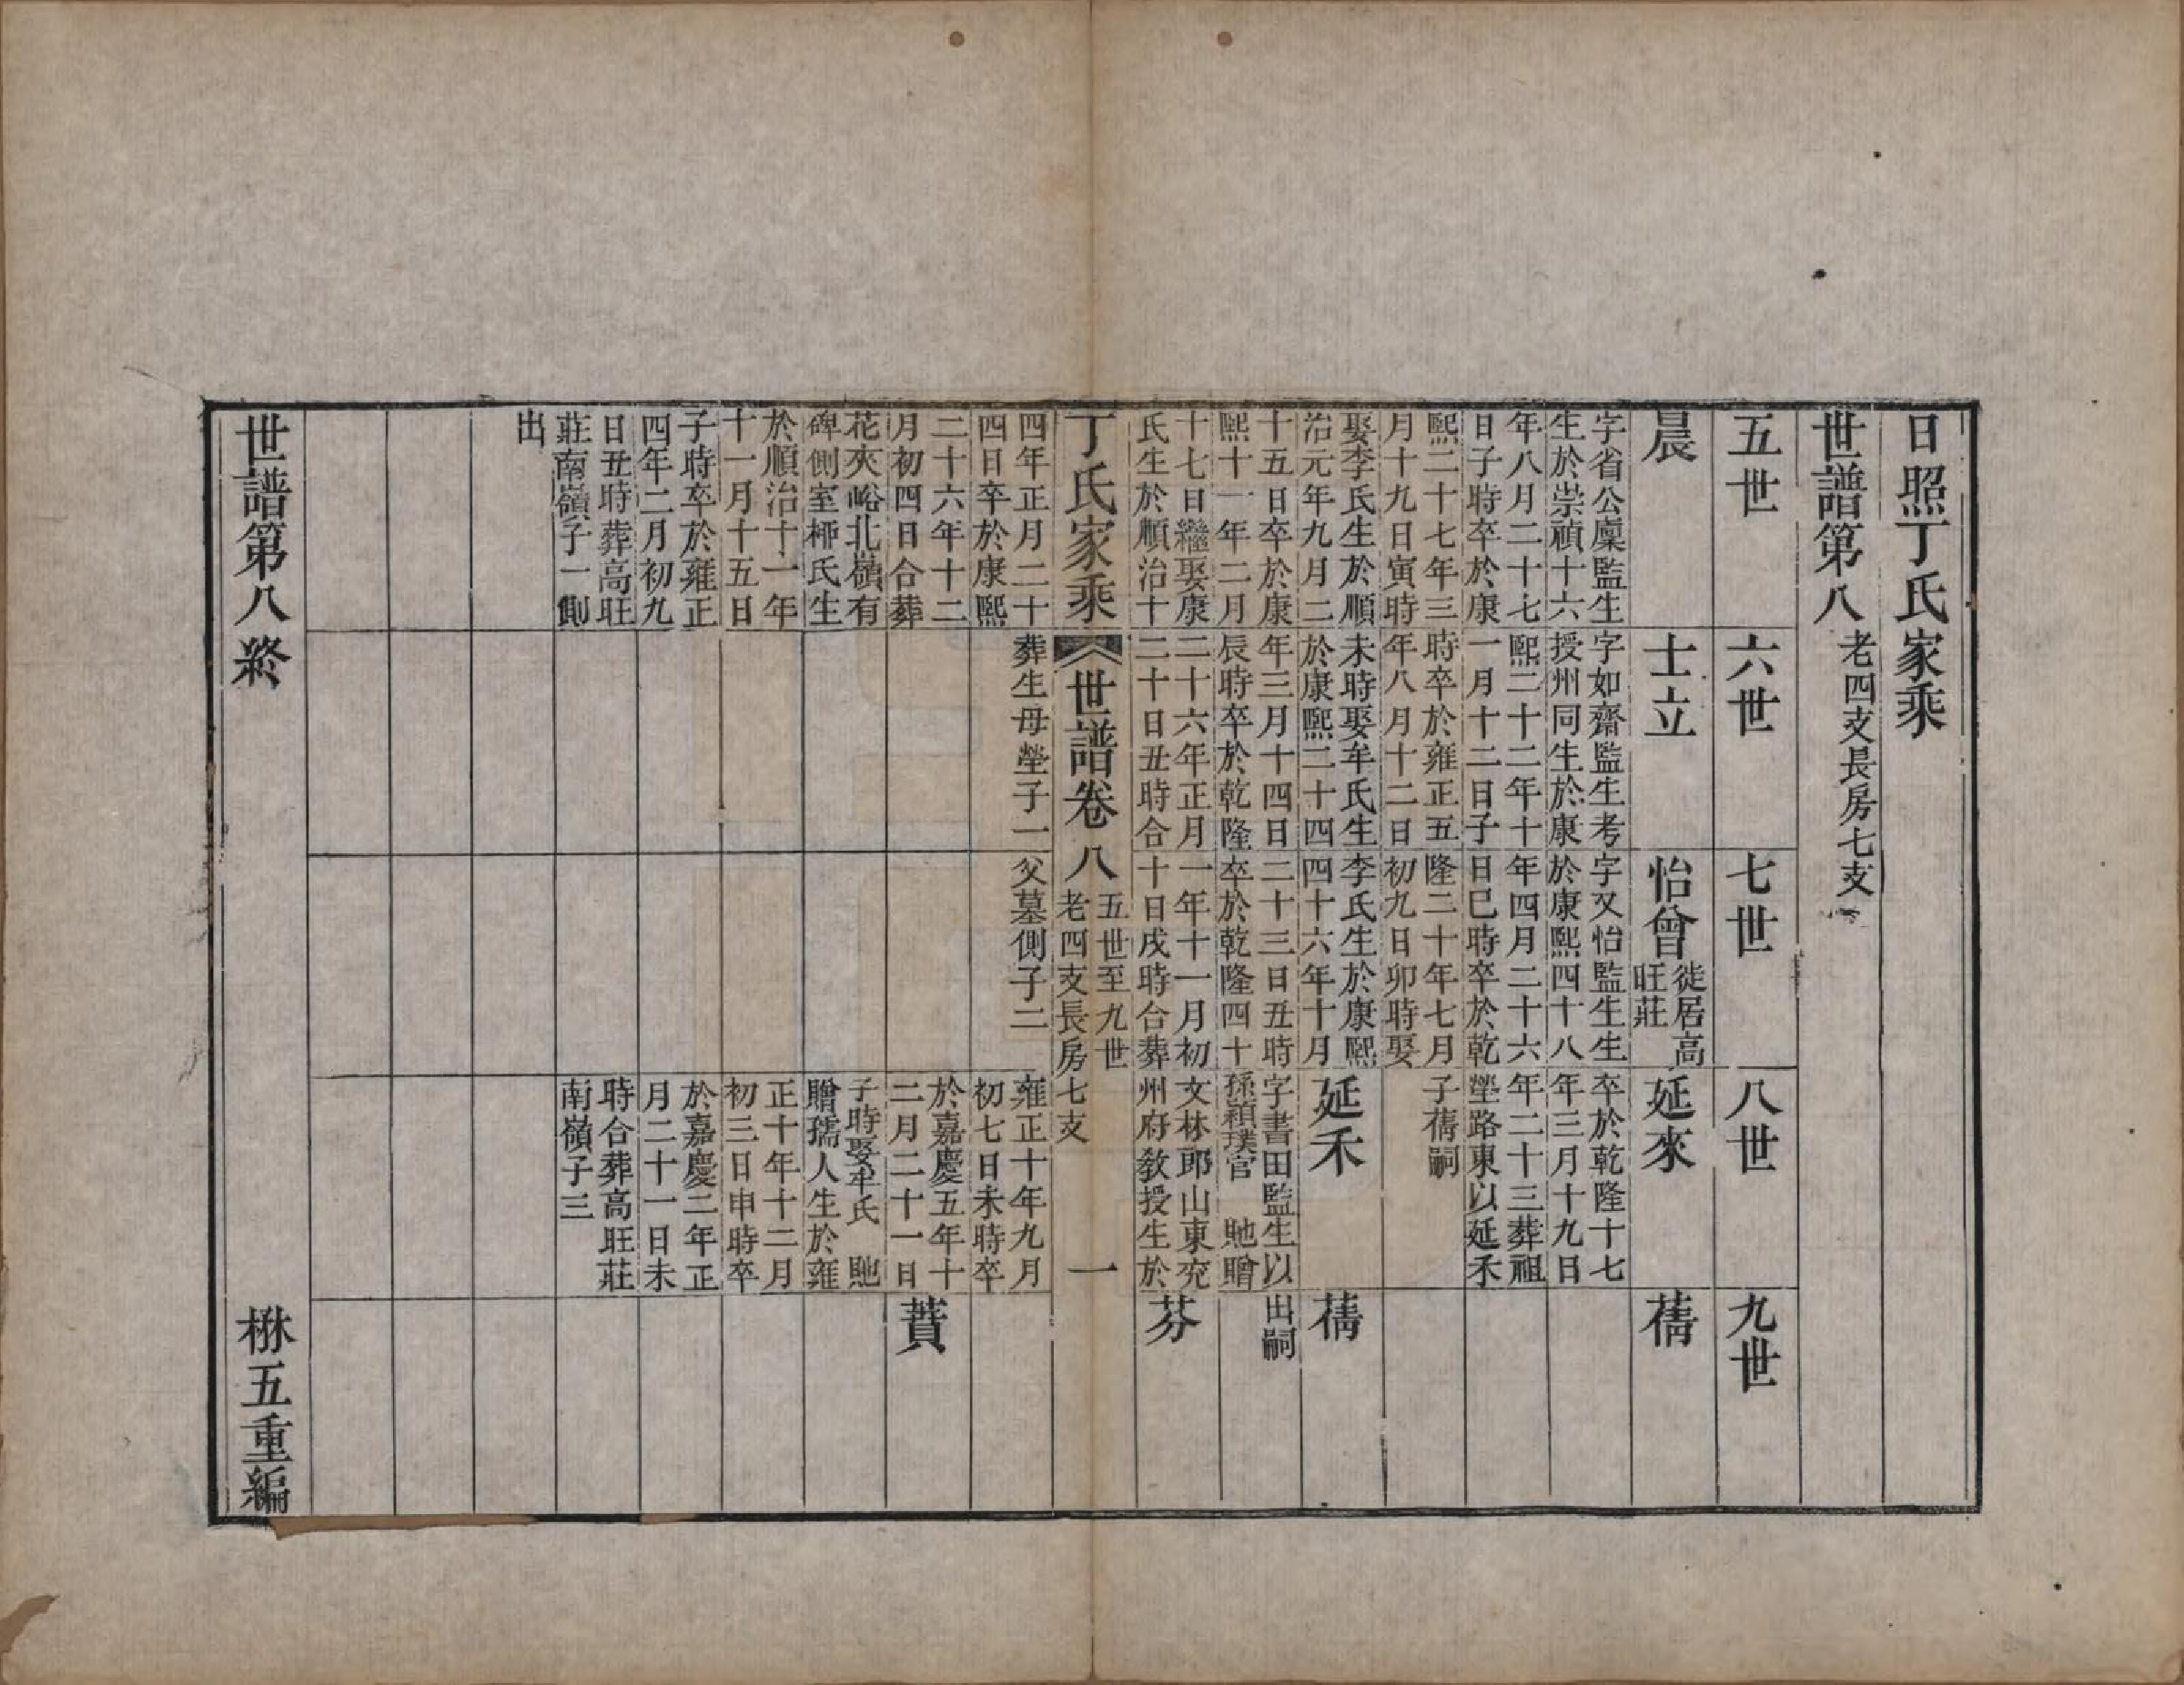 日照丁氏家乘
世譜第八 老四支長房七支
五世
六世
七世
八世
九世
晨
字省公廩監生
生於崇禎十六
年八月二十七
日子時卒於康
熙二十七年三
月十九日寅時
娶李氏生於順
治元年九月二
十五日卒於康
熙十一年二月
十七日繼娶康
氏生於順治十
四年正月二十
四日卒於康熙
二十六年十二
月初四日合葬
花夾峪北嶺有
碑側室桺氏生
於順治十一年
十一月十五日
子時卒於雍正
四年二月初九
日丑時葬高旺
莊南嶺子一側
出
士立
字如齋監生考
授州同生於康
熙二十二年十
一月十二日子
時卒於雍正五
年八月十二日
未時娶牟氏生
於康熙二十四
年三月十四日
辰時卒於乾隆
二十六年正月
二十日丑時合
葬生母塋子一
怡曾 徙居高
旺莊
字又怡監生生
於康熙四十八
年四月二十六
日巳時卒於乾
隆二十年七月
初九日卯時娶
李氏生於康熙
四十六年十月
二十三日丑時
卒於乾隆四十
一年十一月初
十日戌時合葬
父墓側子二
延來
卒於乾隆十七
年三月十九日
年二十三葬祖
塋路東以延禾
子蒨嗣
延禾
字書田監生以
孫穎璞官 貤贈
文林郎山東兖
州府教授生於
雍正十年九月
初七日未時卒
於嘉慶五年十
二月二十一日
子時娶牟氏 貤
贈孺人生於雍
正十年十二月
初三日申時卒
於嘉慶二年正
月二十一日未
時合葬高旺莊
南嶺子三
蒨
蒨
出嗣
芬
蕡
丁氏家乘
世譜卷八 五世至九世
老四支長房七支
一
世譜第八終
楙五重編